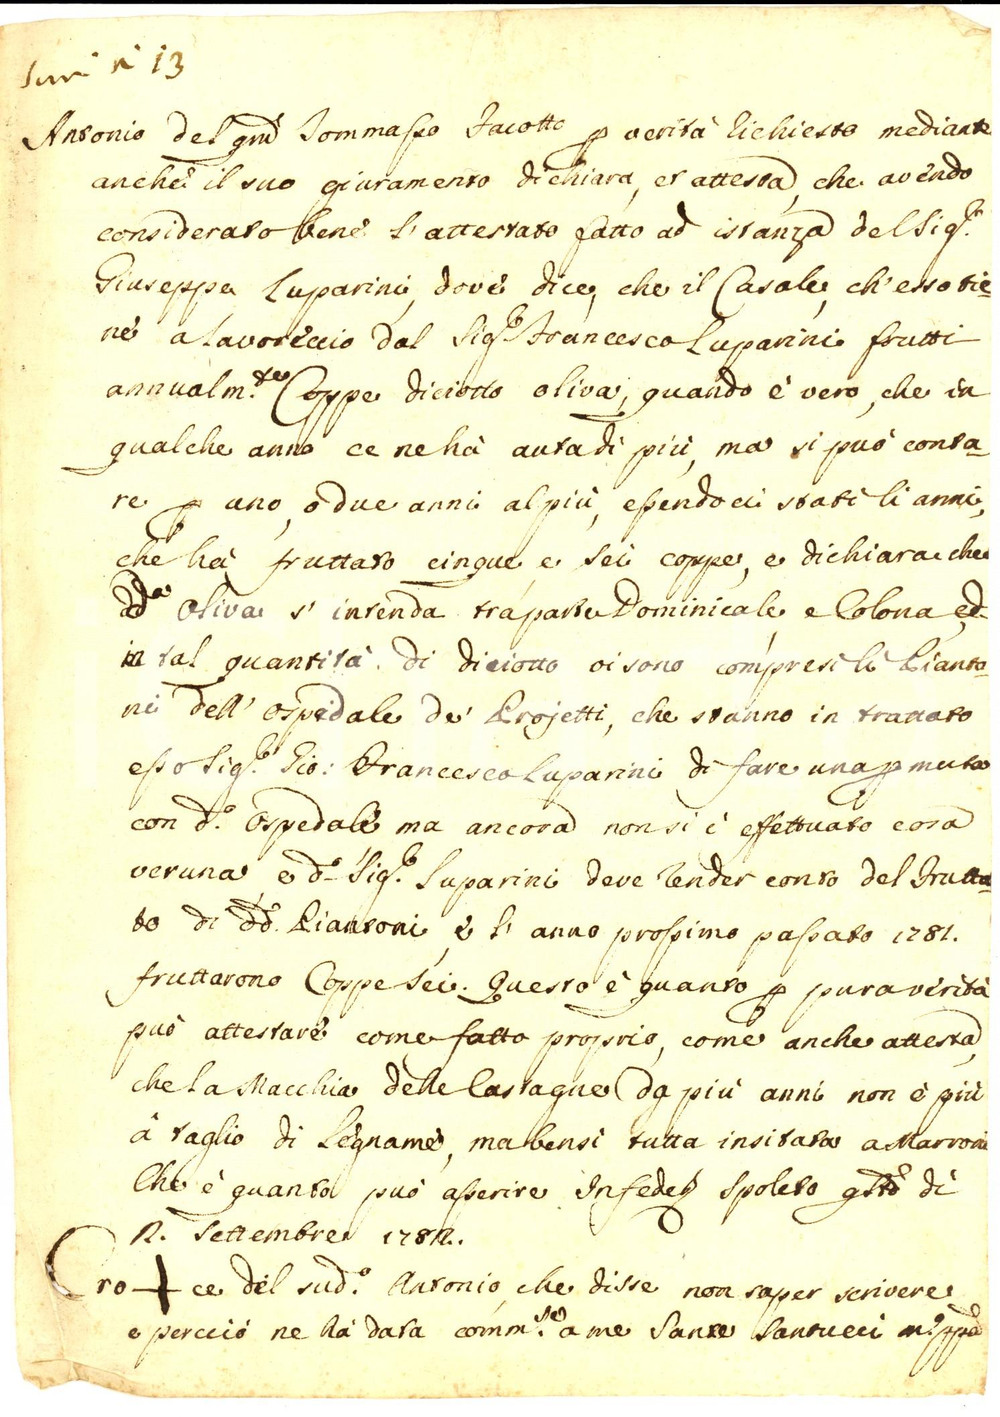 n° 13
Antonio del qm Tommasso Jacotto p verità richiesto mediante
anche il suo giuramento dichiara, et attesta, che avendo
considerato bene l'attestato fatto ad istanza del Sig.r
Giuseppe Luparini, dove dice, che il Casale, ch'esso tie-
ne a lavoreccio dal Sig.r Francesco Luparini frutti
annualm.te Coppe diciotto oliva, quando è vero, che in
qualche anno ce ne hà auta di più, ma si può conta-
re p uno, ò due anni al più, essendoci stati li anni,
che hà fruttato cinque, e sei coppe, e dichiara che
d.a oliva s'intenda trà parte Dominicale e Colona, ed
in tal quantità di diciotto vi sono compresi li Pianto-
ni dell'Ospidale de' Projetti, che stanno in trattato
esso Sig.r Gio: Francesco Luparini di fare una pmuta
con d.o Ospedale ma ancora non si è effettuato cosa
veruna, e d.o Sig.r Luparini deve render conto del Frutta-
to di dd. Piantoni, e l'anno prossimo passato 1781.
fruttarono Coppe Sei. Questo è quanto p pura verità
può attestare come fatto proprio, come anche attesta,
che la Macchia delle Castagne da più anni non è più
à taglio di Legname, ma bensì tutta insitata a Marroni
Che è quanto può asserire In fede Spoleto qsto dì
12. Settembre 1782.
Cro + ce del sud.o Antonio, che disse non saper scrivere
e perciò ne hà data comm.ne a me Sante Santucci m.o pp.a